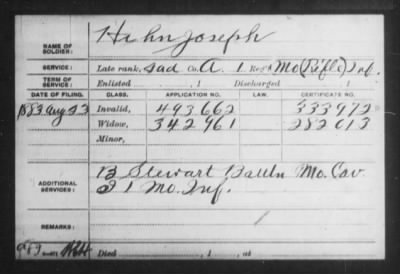 NAME OF SOLDIER: Hahn Joseph
SERVICE: Late rank, Sad Co. A. 1 Reg't Mo (Rifle) Inf.
TERM OF SERVICE: Enlisted , 1 Discharged , 1
DATE OF FILING. CLASS. APPLICATION NO. LAW. CERTIFICATE NO.
1883 Aug 23 Invalid, 493662 333972
Widow, 342961 282013
Minor,
ADDITIONAL SERVICES: B Stewart Battln Mo. Cav
I 1 Mo. Inf.
REMARKS:
Died , 1 , at